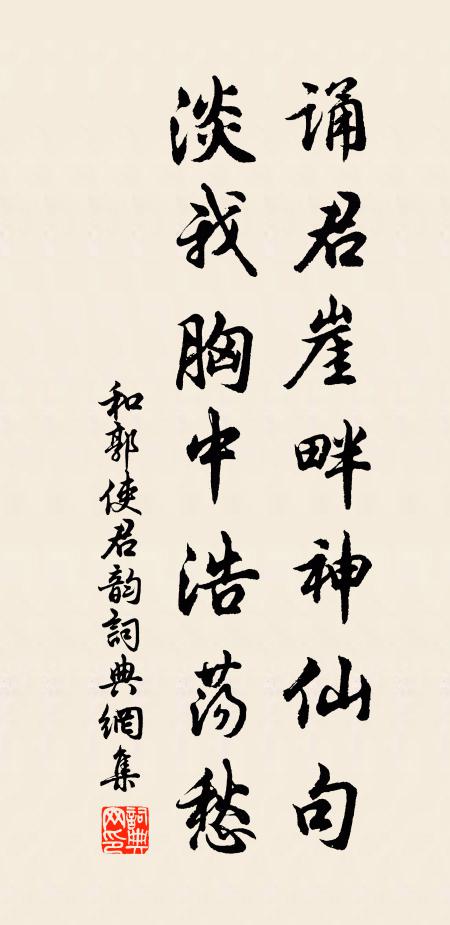 诵君崖畔神仙句
淡我胸中浩荡愁
和郭使君韵詞典網集
詞典網印